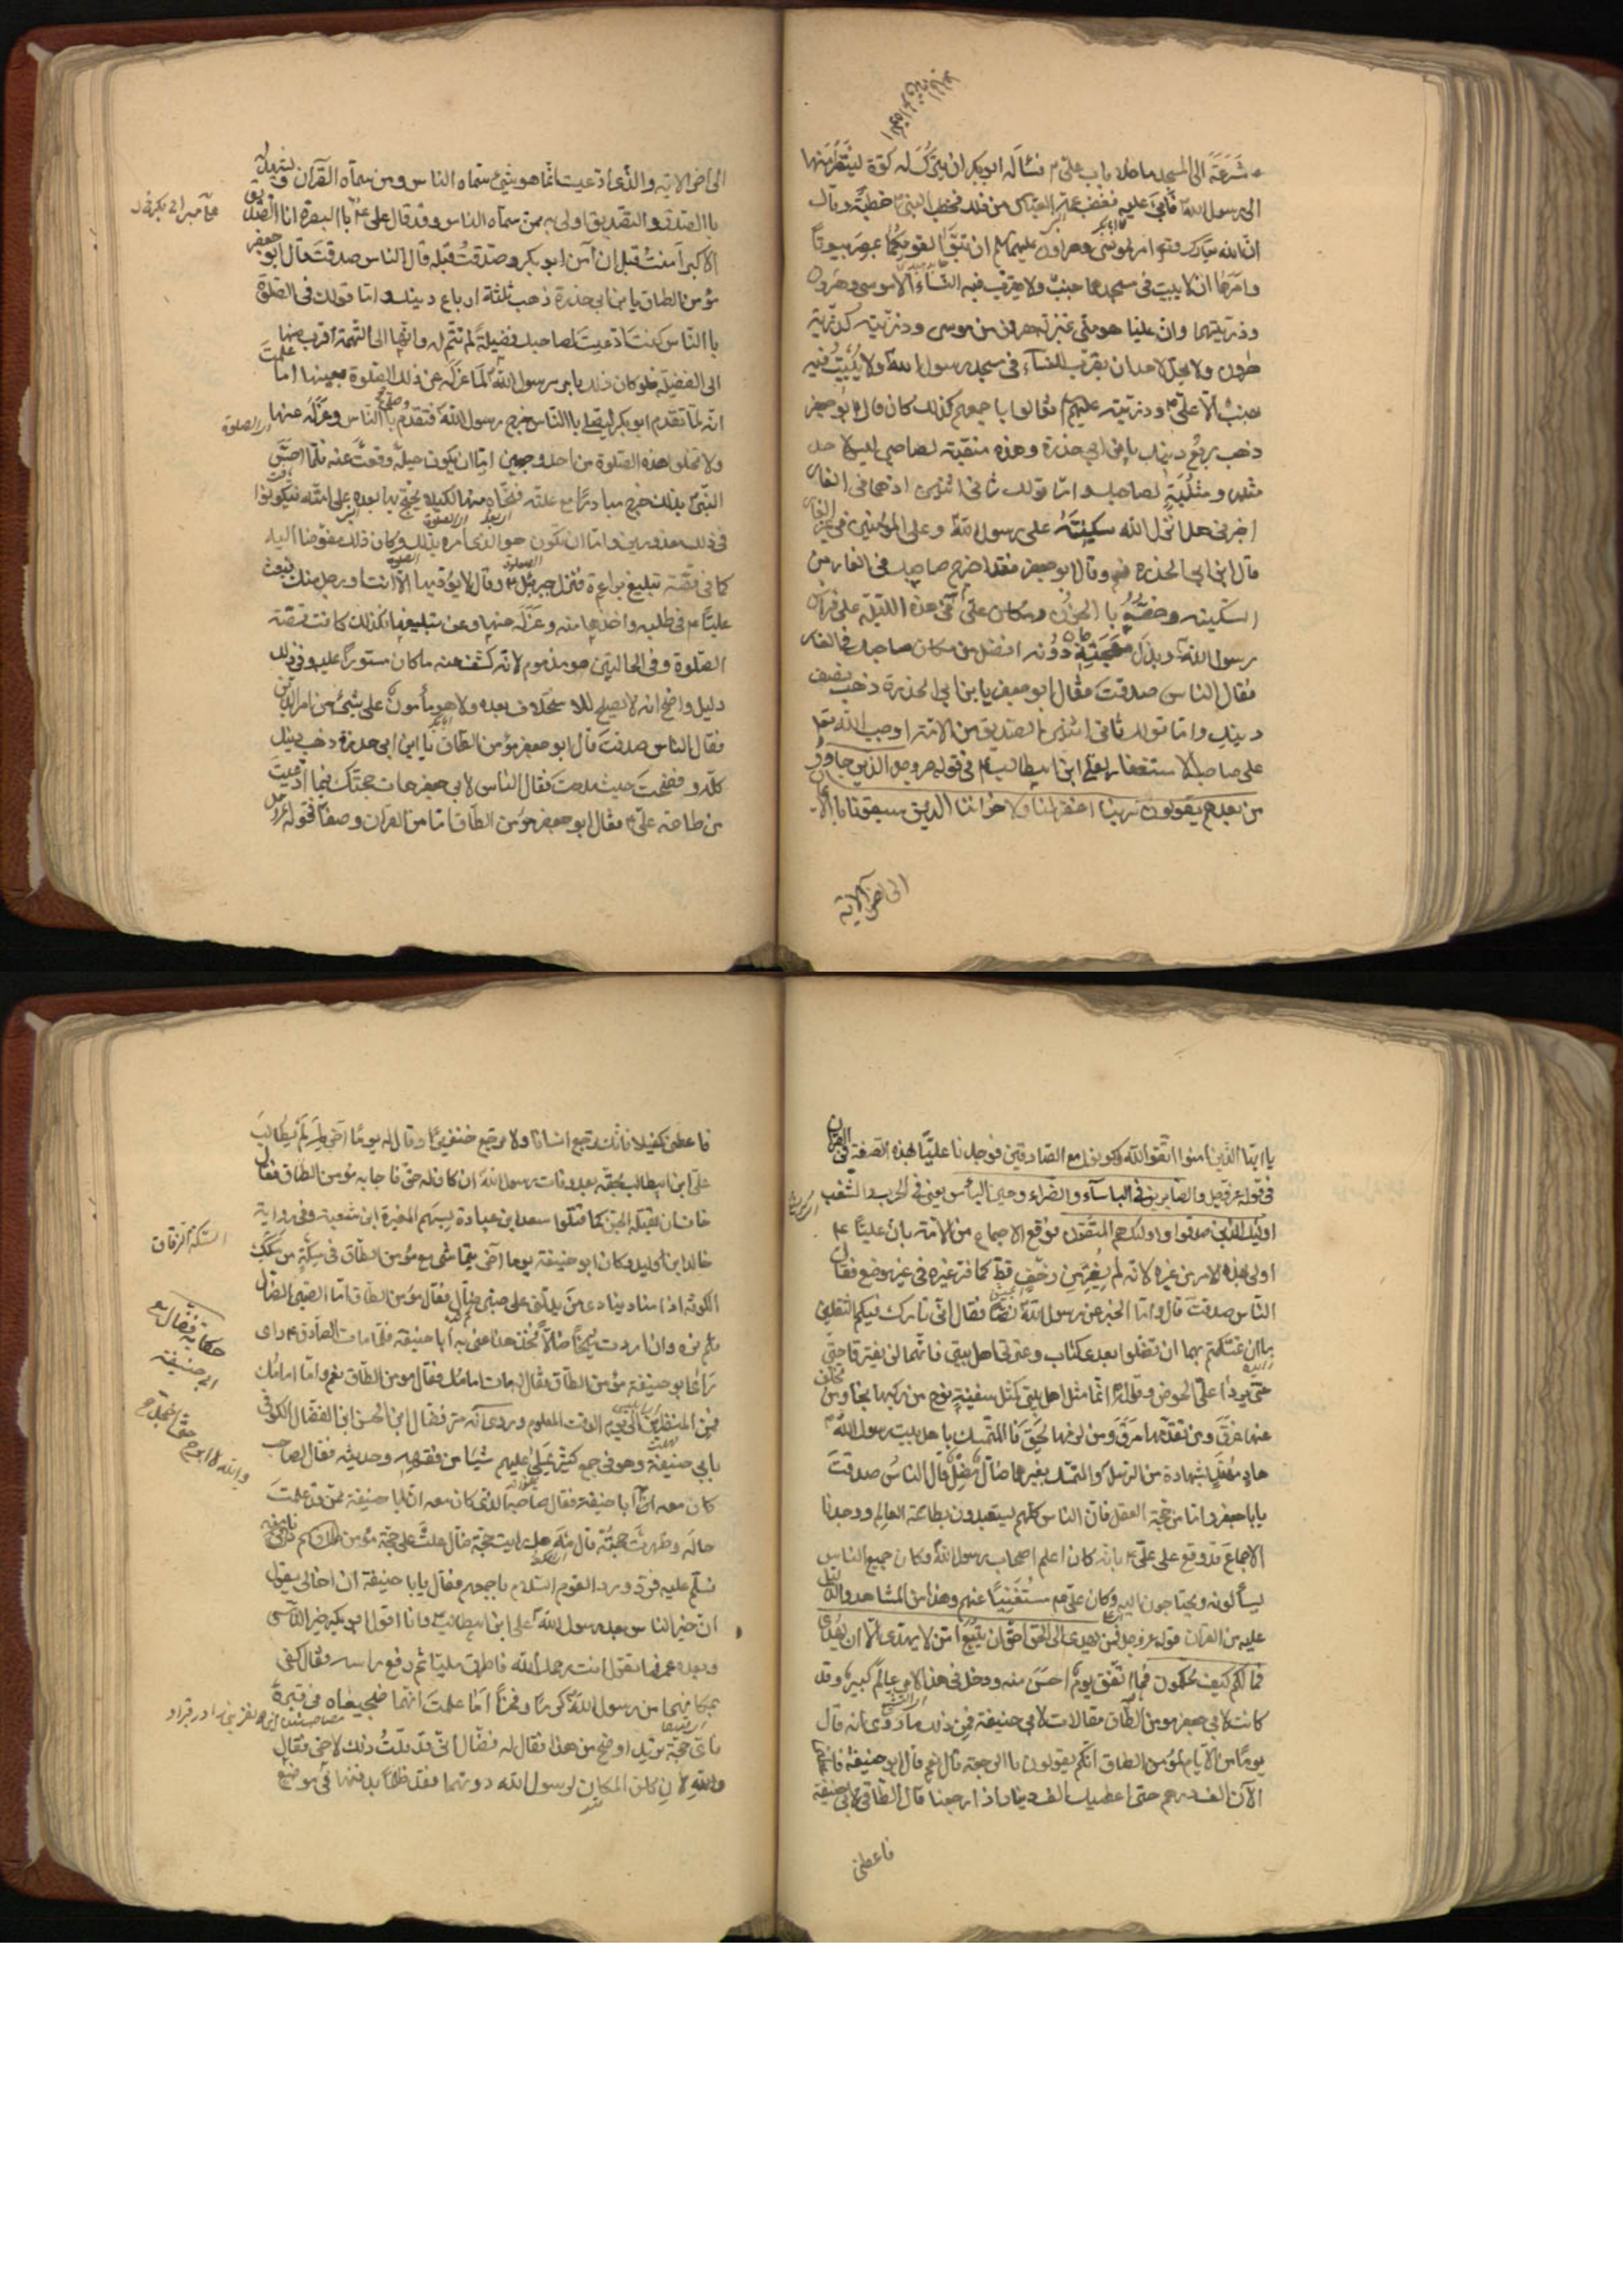 مشرعة الى المسجد ما خلا باب علي ع فسئاله ابو بكر ان يترك له كوة لينظر منها
الى رسول الله ص فابى عليه فغضب عمه العباس من ذلك فخطب النبي ص خطبة وقال
ان الله تبارك وتعالى امر لموسى وهرون عليهما لم ان تبوّا لقومكما بمصر بيوتا
وامرهما ان لا يبيت في مسجدهما جنب ولا يقرب فيه النساء الا موسى وهرون
وذريتهما وان عليا هو مني بمنزلة هرون من موسى وذريته كذرية
هرون ولا يحل لاحد ان يقرب النساء في مسجد رسول الله ولا يبيت فيه
جنب الا علي ع وذريته عليهم لم فقالوا باجمعهم كذلك كان قال ابو جعفر
ذهب ربع دينك يا بن ابي حذرة وهذه منقبة لصاحبي ليس لاحد
مثلها ومثلبة لصاحبك واما قولك ثاني اثنين اذ هما في الغار
اخبرني هل انزل الله سكينته على رسول الله وعلى المؤمنين في غير الغار
قال ابن ابي الحذرة نعم وقال ابو جعفر فقد اخرج صاحبك في الغار من
السكينة وخصه با الحزن ومكان علي ع في هذه الليلة على فراش
رسول الله ص وبذل مهجته دونه افضل من مكان صاحبك في الغار
فقال الناس صدقت فقال ابو جعفر يا بن ابي الحذرة ذهب نصف
دينك واما قولك ثاني اثنين الصديق من الامة اوجب الله تعا
على صاحبك الاستغفار لعلي ابن ابيطالب ع في قوله عز وجل والذين جاؤا
من بعدهم يقولون ربنا اغفر لنا ولاخواننا الذين سبقونا با الايمان
الى اخر الاية
الى اخر الاية والذي ادعيت انما هو شيء سماه الناس ومن سماه القرآن وشهد له
با الصدق والتصديق اولى به ممن سماه الناس وقد قال علي ع با البصرة انا الصديق
الاكبر آمنت قبل ان آمن ابو بكر وصدقت قبله قال الناس صدقت قال ابو جعفر
مؤمن الطاق يا بن ابي حذرة ذهب ثلثة ارباع دينك واما قولك في الصلوة
با الناس كنت ادعيت لصاحبك فضيلة لم تتم له وانها الى التهمة اقرب منها
الى الفضيلة فلو كان ذلك بامر رسول الله ص لما عزله عن ذلك الصلوة بعينها اما علمت
انه لما تقدم ابو بكر ليصلي با الناس خرج رسول الله ص فتقدم وصلى با الناس وعزله عنها
ولا تخلو هذه الصلوة من احد وجهين اما ان يكون حيلة وقعت عنه فلما احس
النبي ص بذلك خرج مبادرا مع علته فنحاه عنها لكيلا يحتج بها بعده على امته فيكونوا
في ذلك معذورين واما ان يكون هو الذي امره بذلك وكان ذلك مفوضا اليه
كما في قصة تبليغ براءة فنزل جبرئيل ع وقال لا يؤديها الا انت او رجل منك فبعث
عليا ع في طلبه واخذها منه وعزله عنها وعن تبليغها فكذلك كانت قصة
الصلوة وفي الحالتين هو مذموم لانه كشف عنه ما كان مستورا عليه وفي ذلك
دليل واضح انه لا يصلح للاستخلاف بعده ولا هو مأمون على شيء من امر الدين
فقال الناس صدقت قال ابو جعفر مؤمن الطاق يا ابن ابي حذرة ذهب دينك
كله وفضحت حيث مدحت فقال الناس لابي جعفر هات حجتك فيما ادعيت
من طاعة علي ع فقال ابو جعفر مؤمن الطاق اما من القرآن وصفا فقوله عز وجل
يا ايها الذين امنوا اتقوا الله وكونوا مع الصادقين فوجدنا عليا بهذه الصفة في القرآن
في قوله عز وجل والصابرين في الباسآء والضراء وحين البأس يعني في الحرب والشغب
اولئك الذين صدقوا واولئك هم المتقون فوقع الاجماع من الامة بان عليا ع
اولى بهذه الامر من غيره لانه لم يفر من زحف قط كما فر غيره في غير موضع فقال
الناس صدقت قال واما الخبر عن رسول الله ص نصا فقال اني تارك فيكم الثقلين
ما ان تمسكتم بهما لن تضلوا بعدي كتاب وعترتي اهل بيتي فانهما لن يفترقا حتى
يردا علي الحوض وقوله انما مثل اهل بيتي كمثل سفينة نوح من ركبها نجا ومن تخلف
عنها غرق ومن تقدمها مرق ومن لزمها لحق فا المتمسك با هل بيت رسول الله ص
هاد مهتد بشهادة من الرسول والمتمسك بغيرهما ضال مضل قال الناس صدقت
يا با جعفر واما من حجة العقل فان الناس كلهم يستعبدون بطاعة العالم ووجدنا
الاجماع قد وقع على علي ع بانه كان اعلم اصحاب رسول الله وكان جميع الناس
يسألونه ويحتاجون اليه وكان علي ع مستغنيا عنهم وهذا من المشاهد والدليل
عليه من القرآن قوله عز وجل افمن يهدي الى الحق احق ان يتبع امن لا يهتدي الا ان يهدى
فما لكم كيف تحكمون فما اتفق يوم احسن منه ودخل في هذا الامر عالم كبير وقد
كانت لابي جعفر مومن الطاق مقالات لابي حنيفة فمن ذلك ما روى انه قال
يوما من الايام لمؤمن الطاق انكم تقولون با الرجعة قال نعم قال ابو حنيفة فاعطني
الآن الف درهم حتى اعطيك الف دينار اذا رجعنا قال الطاقي لابي حنيفة
فاعطني
فاعطني كفيلا بانك ترجع انسانا ولا ترجع خنزيرا وقال له يوما آخر لم لم يطالب
علي ابن ابيطالب بحقه بعد وفات رسول الله ص ان كان له حق فاجابه مؤمن الطاق فقال
خاف ان تقتله الجن كما قتلوا سعد ابن عبادة بسهم المغيرة ابن شعبة وفي رواية
خالد ابن الوليد وكان ابو حنيفة يوما آخر يتماشى مع مؤمن الطاق في سكة من سكك
الكوفة اذا مناد ينادي من يدلني على صبي ضال فقال مؤمن الطاق اما الصبي الضال
فلم نره وان اردت شيخا ضالا فخذ هذا عنى به ابا حنيفة فلما مات الصادق ع راى
ابو حنيفة مؤمن الطاق فقال له مات امامك فقال مومن الطاق نعم واما امامك
فمن المنظرين الى يوم الوقت المعلوم وروى انه مر فضال ابن الحسن ابن الفضال الكوفي
بابي حنيفة وهو في جمع كثير يملي عليهم شيئا من فقهه وحديثه فقال لصاحب
كان معه
فسلم عليه فرد ورد القوم السلام باجمعهم فقال يا با حنيفة ان اخا لي يقول
ان خير الناس بعد رسول الله ص علي ابن ابيطالب ع وانا اقول ابو بكر خير الناس
وبعده عمر فما تقول انت رحمك الله فاطرق مليا ثم رفع راسه وقال كفى
بمكانهما من رسول الله ص كرما وفخرا اما علمت انهما ضجيعاه في قبره
فاي حجة تريد اوضح من هذا فقال له فضال اني قد قلت ذلك لاخي فقال
والله لان كان المكان لرسول الله دونهما فقد ظلما بدفنهما في موضع
السكة الزقاق
حكاية فضال مع
ابي حنيفة